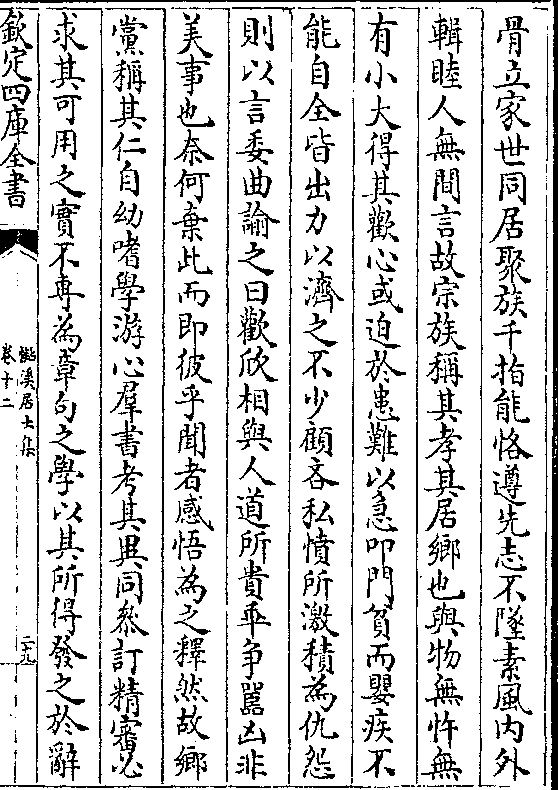 骨立家世同居聚族千指能恪遵先志不墜素風内外
輯睦人無間言故宗族稱其孝其居鄉也與物無忤無
有小大得其歡心或迫於患難以急叩門貧而嬰疾不
能自全皆出力以濟之不少顧吝私憤所激積為仇怨
則以言委曲論之曰歡欣相與人道所貴乖争嚚凶非
美事也奈何棄此而即彼乎聞者感悟為之釋然故鄉
黨稱其仁自幼嗜學游心羣書考其異同叅訂精審必
求其可用之實不専為章句之學以其所得發之於辭
欽定四庫全書
栁溪居士集
卷十二
二十九